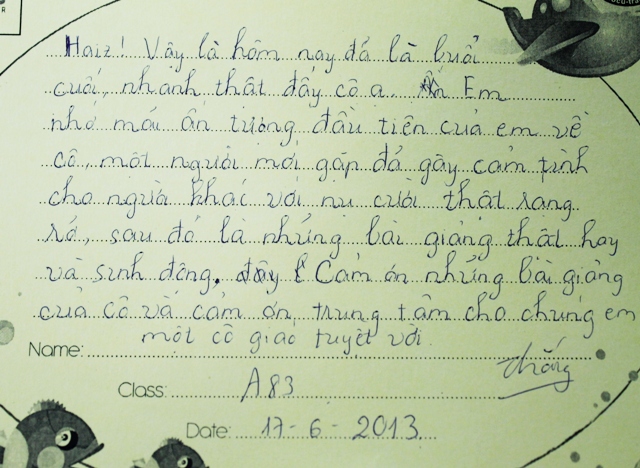 Haiz! Vậy là hôm nay đã là buổi
cuối, nhanh thật đấy cô ạ. Em
nhớ mãi ấn tượng đầu tiên của em về
cô, một người mới gặp đã gây cảm tình
cho người khác với nụ cười thật rạng
rỡ, sau đó là những bài giảng thật hay
và sinh động. đầy Cảm ơn những bài giảng
của cô và cảm ơn trung tâm cho chúng em
một cô giáo tuyệt vời.
Name:
thắng
Class: A83
Date: 17-6-2013